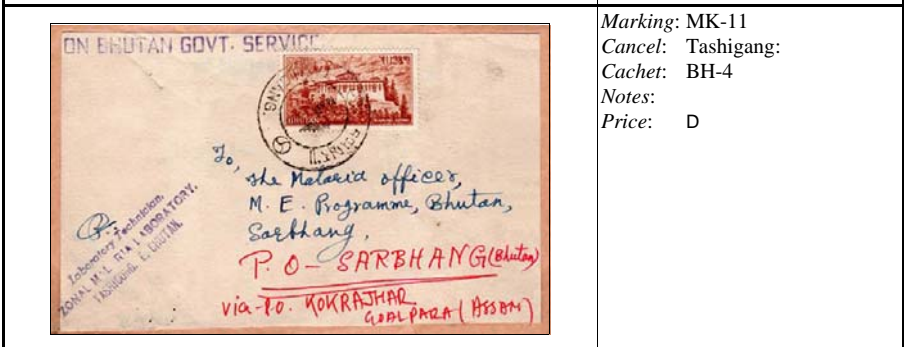 ON BHUTAN GOVT. SERVICE
To,
The Malaria officer,
M. E. Programme, Bhutan,
Sarbhang,
P. O - SARBHANG (Bhutan)
via-P.O. KOKRAJHAR
GOALPARA (ASSAM)
Laboratory Technician,
ZONAL MALARIA LABORATORY,
TASHIGANG, E. BHUTAN.
Marking: MK-11
Cancel: Tashigang:
Cachet: BH-4
Notes:
Price: D